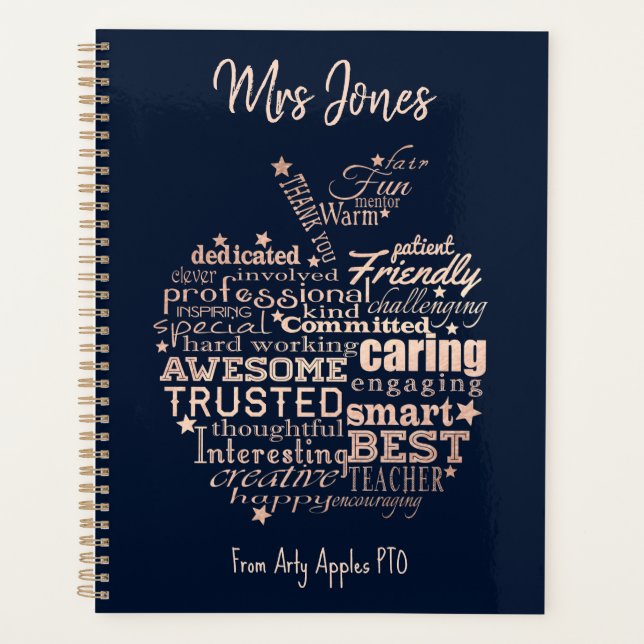 Mrs Jones
fair
Fun
mentor
Warm
THANK YOU
dedicated
patient
clever involved
Friendly
professional
INSPIRING kind
challenging
special Committed
hard working
caring
AWESOME
engaging
TRUSTED
smart
thoughtful
Interesting
BEST
creative
TEACHER
happy
encouraging
From Arty Apples PTO